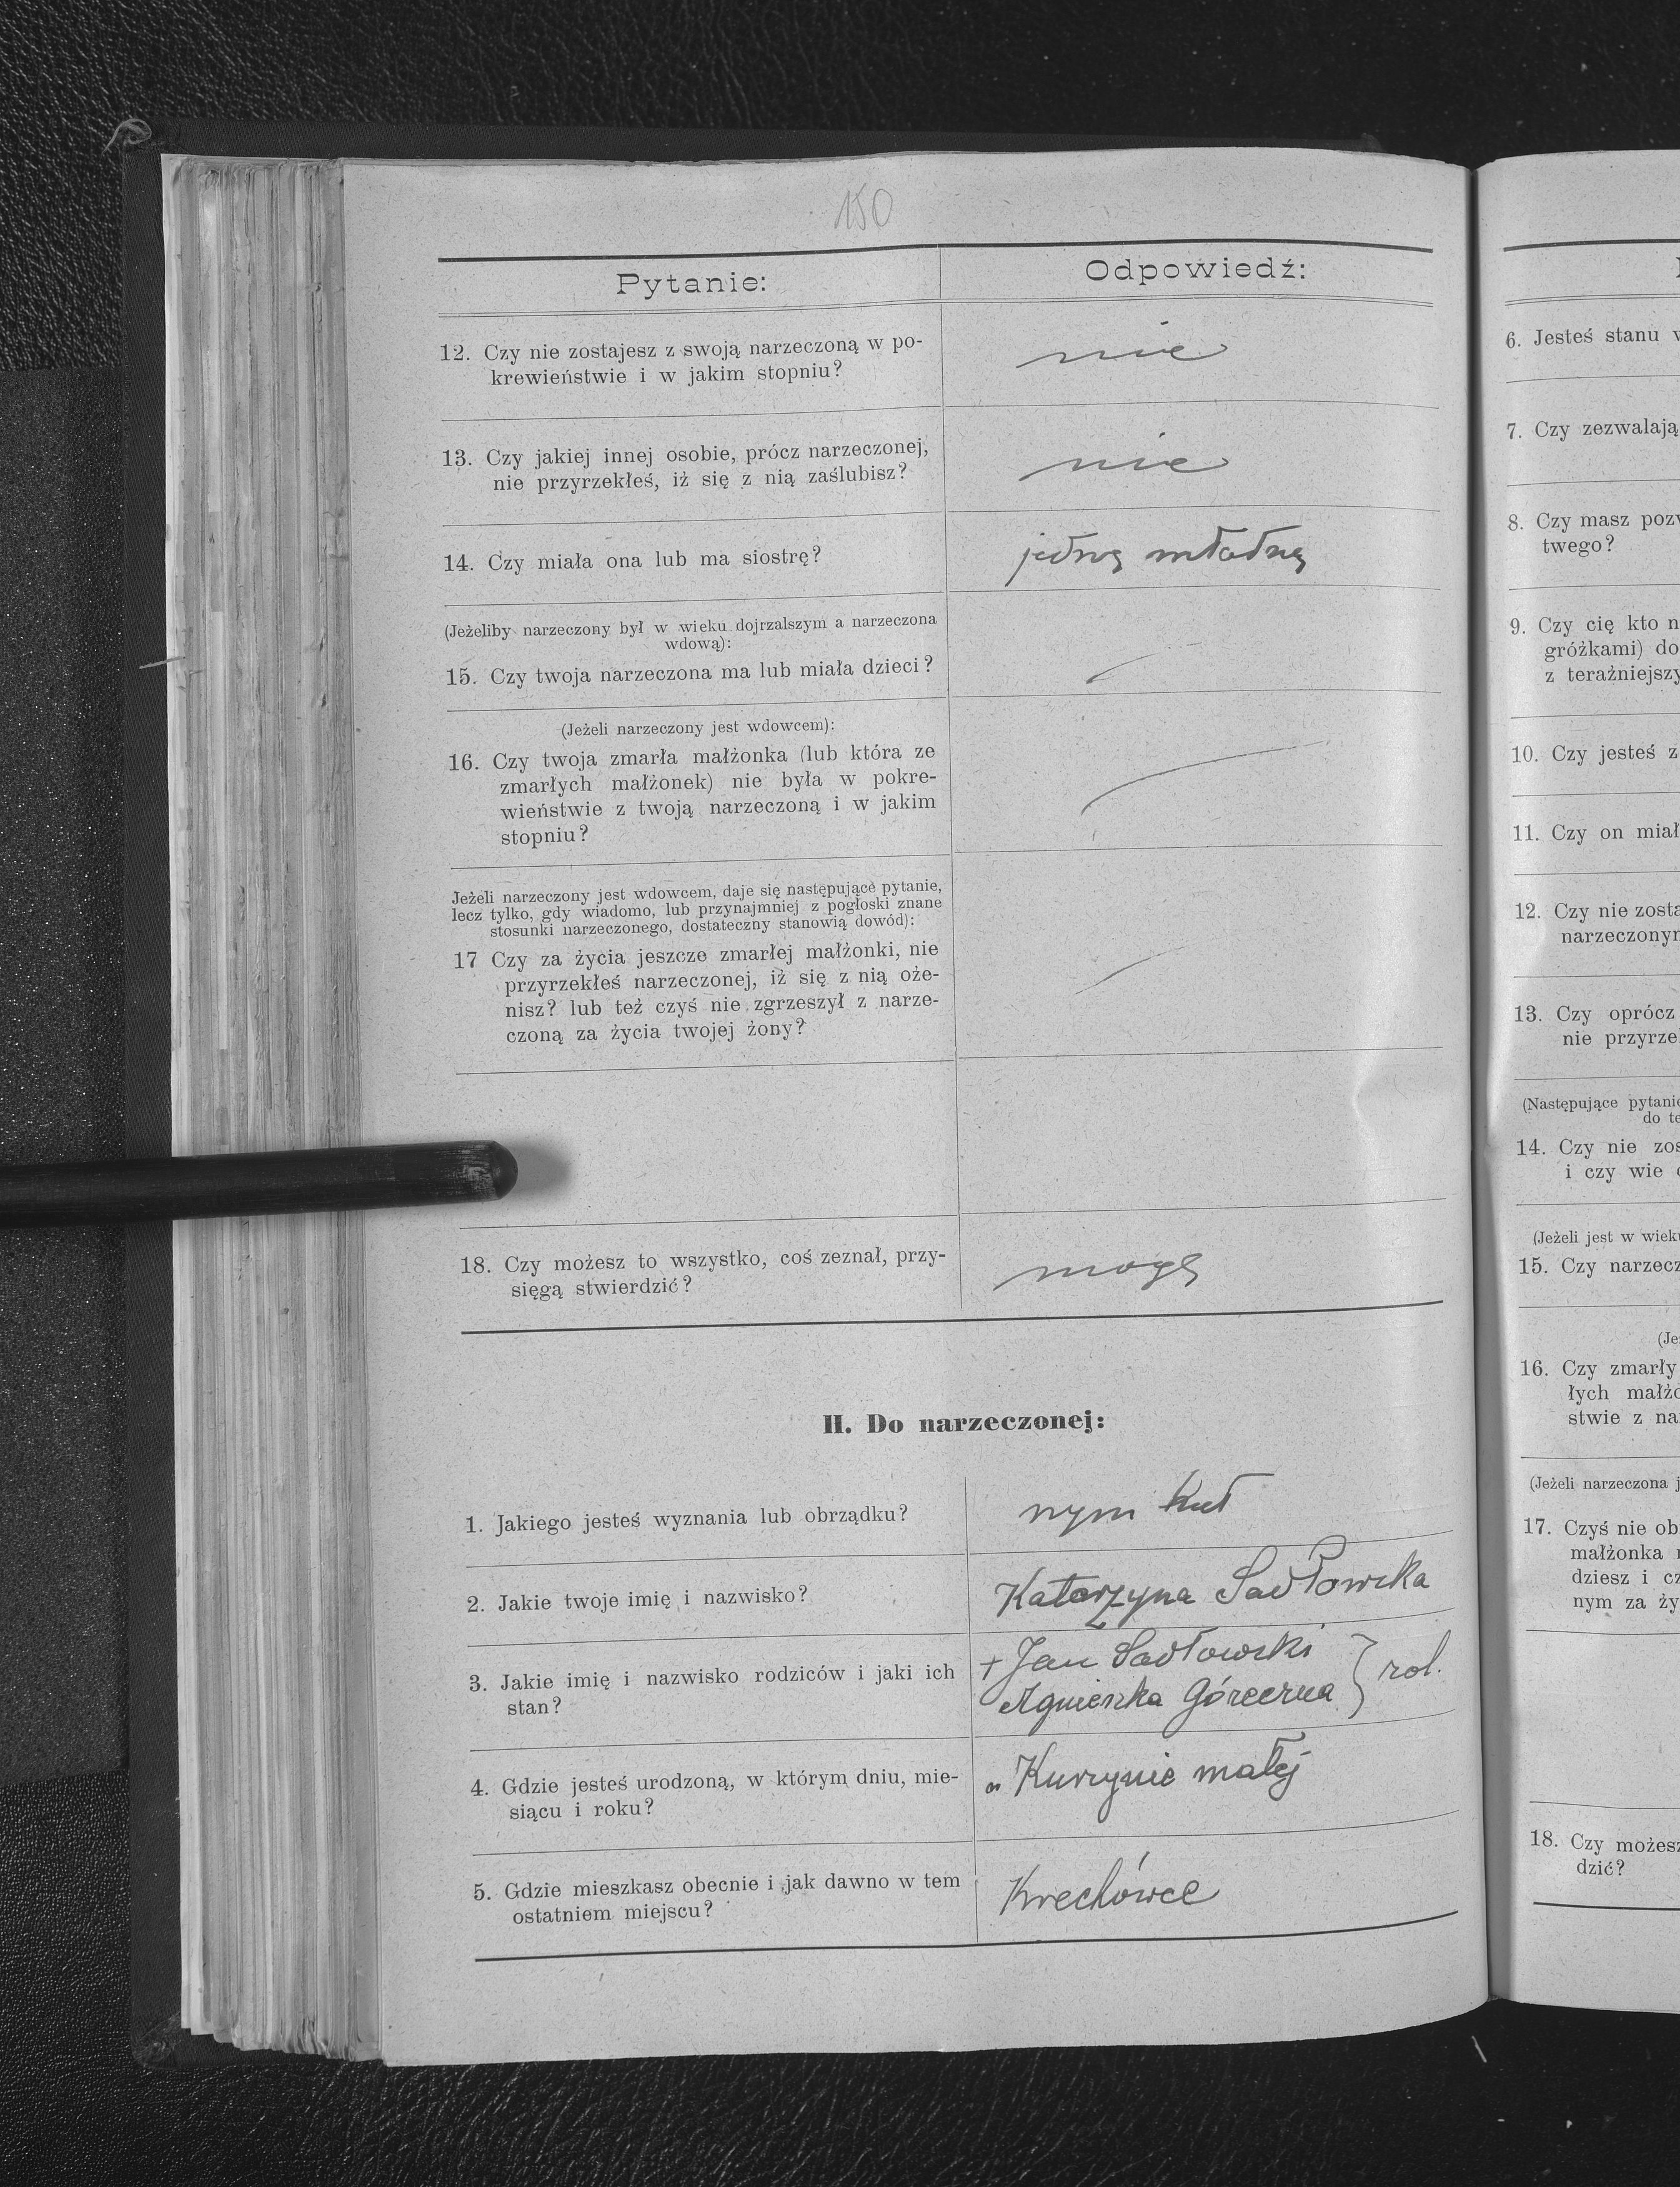 150
Pytanie:
Odpowiedź:
12. Czy nie zostajesz z swoją narzeczoną w po-
krewieństwie i w jakim stopniu?
nie
13. Czy jakiej innej osobie, prócz narzeczonej,
nie przyrzekłeś, iż się z nią zaślubisz?
nie
14. Czy miała ona lub ma siostrę?
jedną
(Jeżeliby narzeczony był w wieku dojrzalszym a narzeczona
wdową):
15. Czy twoja narzeczona ma lub miała dzieci?
(Jeżeli narzeczony jest wdowcem):
16. Czy twoja zmarła małżonka (lub która ze
zmarłych małżonek) nie była w pokre-
wieństwie z twoją narzeczoną i w jakim
stopniu?
Jeżeli narzeczony jest wdowcem, daje się następujące pytanie,
lecz tylko, gdy wiadomo, lub przynajmniej z pogłoski znane
stosunki narzeczonego, dostateczny stanowią dowód):
17 Czy za życia jeszcze zmarłej małżonki, nie
przyrzekłeś narzeczonej, iż się z nią oże-
nisz? lub też czyś nie zgrzeszył z narze-
czoną za życia twojej żony?
18. Czy możesz to wszystko, coś zeznał, przy-
sięgą stwierdzić?
mogę
II. Do narzeczonej:
1. Jakiego jesteś wyznania lub obrządku?
rzym kat
2. Jakie twoje imię i nazwisko?
Katarzyna Sadłowska
3. Jakie imię i nazwisko rodziców i jaki ich
stan?
+ Jan Sadłowski
Agnieszka } rol.
4. Gdzie jesteś urodzoną, w którym dniu, mie-
siącu i roku?
Kurzynie małej
5. Gdzie mieszkasz obecnie i jak dawno w tem
ostatniem miejscu?
Krechówce
6. Jesteś stanu
7. Czy zezwalają
8. Czy masz pozw
twego?
9. Czy cię kto n
gróżkami) do
z teraźniejszy
10. Czy jesteś z
11. Czy on miał
12. Czy nie zosta
narzeczonym
13. Czy oprócz
nie przyrze
(Następujące pytanie
do te
14. Czy nie zos
i czy wie
(Jeżeli jest w wieku
15. Czy narzecz
(Je
16. Czy zmarły
łych małżo
stwie z na
(Jeżeli narzeczona j
17. Czyś nie ob
małżonka
dziesz i cz
nym za ży
18. Czy możesz
dzić?